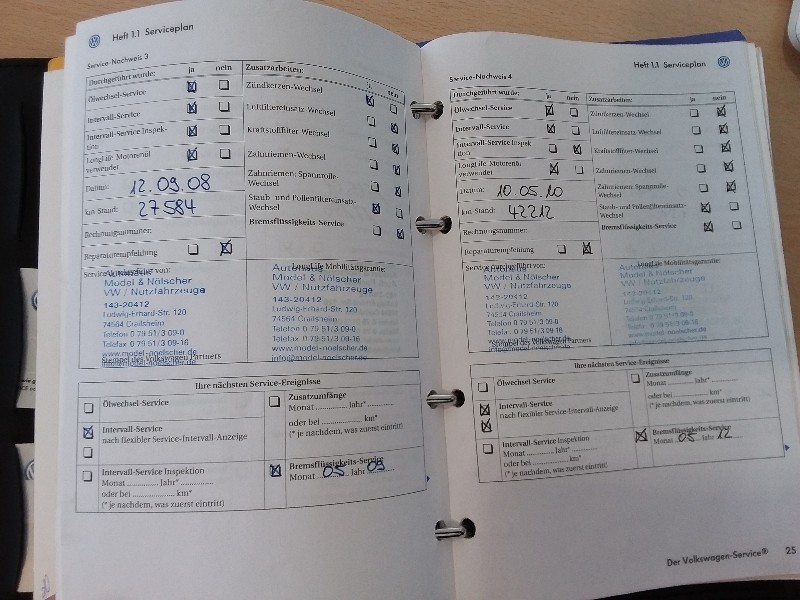 Heft 1.1 Serviceplan
Service-Nachweis 3
Durchgeführt wurde: ja nein
Ölwechsel-Service
Intervall-Service
Intervall-Service Inspek-
tion
LongLife Motorenöl
verwendet
Datum: 12.09.08
km-Stand: 27584
Rechnungsnummer:
Reparaturempfehlung
Zusatzarbeiten: ja nein
Zündkerzen-Wechsel
Luftfiltereinsatz-Wechsel
Kraftstofffilter-Wechsel
Zahnriemen-Wechsel
Zahnriemen-Spannrolle-
Wechsel
Staub- und Pollenfiltereinsatz-
Wechsel
Bremsflüssigkeits-Service
Service durchgeführt von:
Model & Nölscher
VW / Nutzfahrzeuge
143-20412
Ludwig-Erhard-Str. 120
74564 Crailsheim
Telefon 0 79 51/3 09-0
Telefax 0 79 51/3 09-16
www.model-noelscher.de
Stempel des Volkswagen Partners
LongLife Mobilitätsgarantie:
Model & Nölscher
VW / Nutzfahrzeuge
143-20412
Ludwig-Erhard-Str. 120
74564 Crailsheim
Telefon 0 79 51/3 09-0
Telefax 0 79 51/3 09-16
www.model-noelscher.de
info@model-noelscher.de
Ihre nächsten Service-Ereignisse
Ölwechsel-Service
Intervall-Service
nach flexibler Service-Intervall-Anzeige
Intervall-Service Inspektion
Monat Jahr*
oder bei km*
(* je nachdem, was zuerst eintritt)
Zusatzumfänge
Monat Jahr*
oder bei km*
(* je nachdem, was zuerst eintritt)
Bremsflüssigkeits-Service
Monat 05 Jahr 09
Heft 1.1 Serviceplan
Service-Nachweis 4
Durchgeführt wurde: ja nein
Ölwechsel-Service
Intervall-Service
Intervall-Service Inspek
tion
LongLife Motorenöl
verwendet
Datum: 10.05.10
km-Stand: 42212
Rechnungsnummer:
Reparaturempfehlung
Zusatzarbeiten: ja nein
Zündkerzen-Wechsel
Luftfiltereinsatz-Wechsel
Kraftstofffilter-Wechsel
Zahnriemen-Wechsel
Zahnriemen-Spannrolle-
Wechsel
Staub- und Pollenfiltereinsatz-
Wechsel
Bremsflüssigkeits-Service
Service durchgeführt von:
Model & Nölscher
VW / Nutzfahrzeuge
143-20412
Ludwig-Erhard-Str. 120
74564 Crailsheim
Telefon 0 79 51/3 09-0
Telefax 0 79 51/3 09-16
Stempel des Volkswagen Partners
LongLife Mobilitätsgarantie:
Model & Nölscher
VW / Nutzfahrzeuge
143-20412
Ludwig-Erhard-Str. 120
74564 Crailsheim
Ihre nächsten Service-Ereignisse
Ölwechsel-Service
Intervall-Service
nach flexibler Service-Intervall-Anzeige
Intervall-Service Inspektion
Monat Jahr*
oder bei km*
(* je nachdem, was zuerst eintritt)
Zusatzumfänge
Monat Jahr*
oder bei km*
(* je nachdem, was zuerst eintritt)
Bremsflüssigkeits-Service
Monat 05 Jahr 12
Der Volkswagen-Service® 25